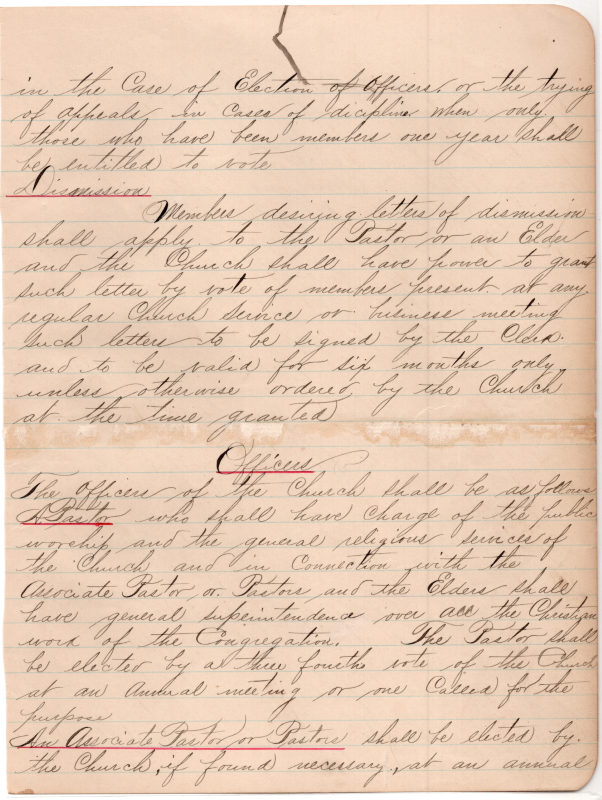 in the Case of Election of Officers, or the trying
of appeals in cases of dicipline when only
those who have been members one year shall
be entitled to vote
Dismission
Members desiring letters of dismission
shall apply to the Pastor or an Elder
and the Church shall have power to grant
such letter by vote of members present at any
regular Church service or business meeting
such letters to be signed by the Clerk.
and to be valid for six months only,
unless otherwise ordered by the Church
at the time granted
Officers
The officers of the Church shall be as follows
A Pastor who shall have charge of the public
worship and the general religious services of
the Church and in Connection with the
Associate Pastor or Pastors and the Elders shall
have general supeintendence over all the Christian
work of the Congregation. The Pastor shall
be elected by a three fourths vote of the Church
at an Annual meeting or one Called for the
purpose
An Associate Pastor or Pastors shall be elected by
the Church, if found necessary, at an annual